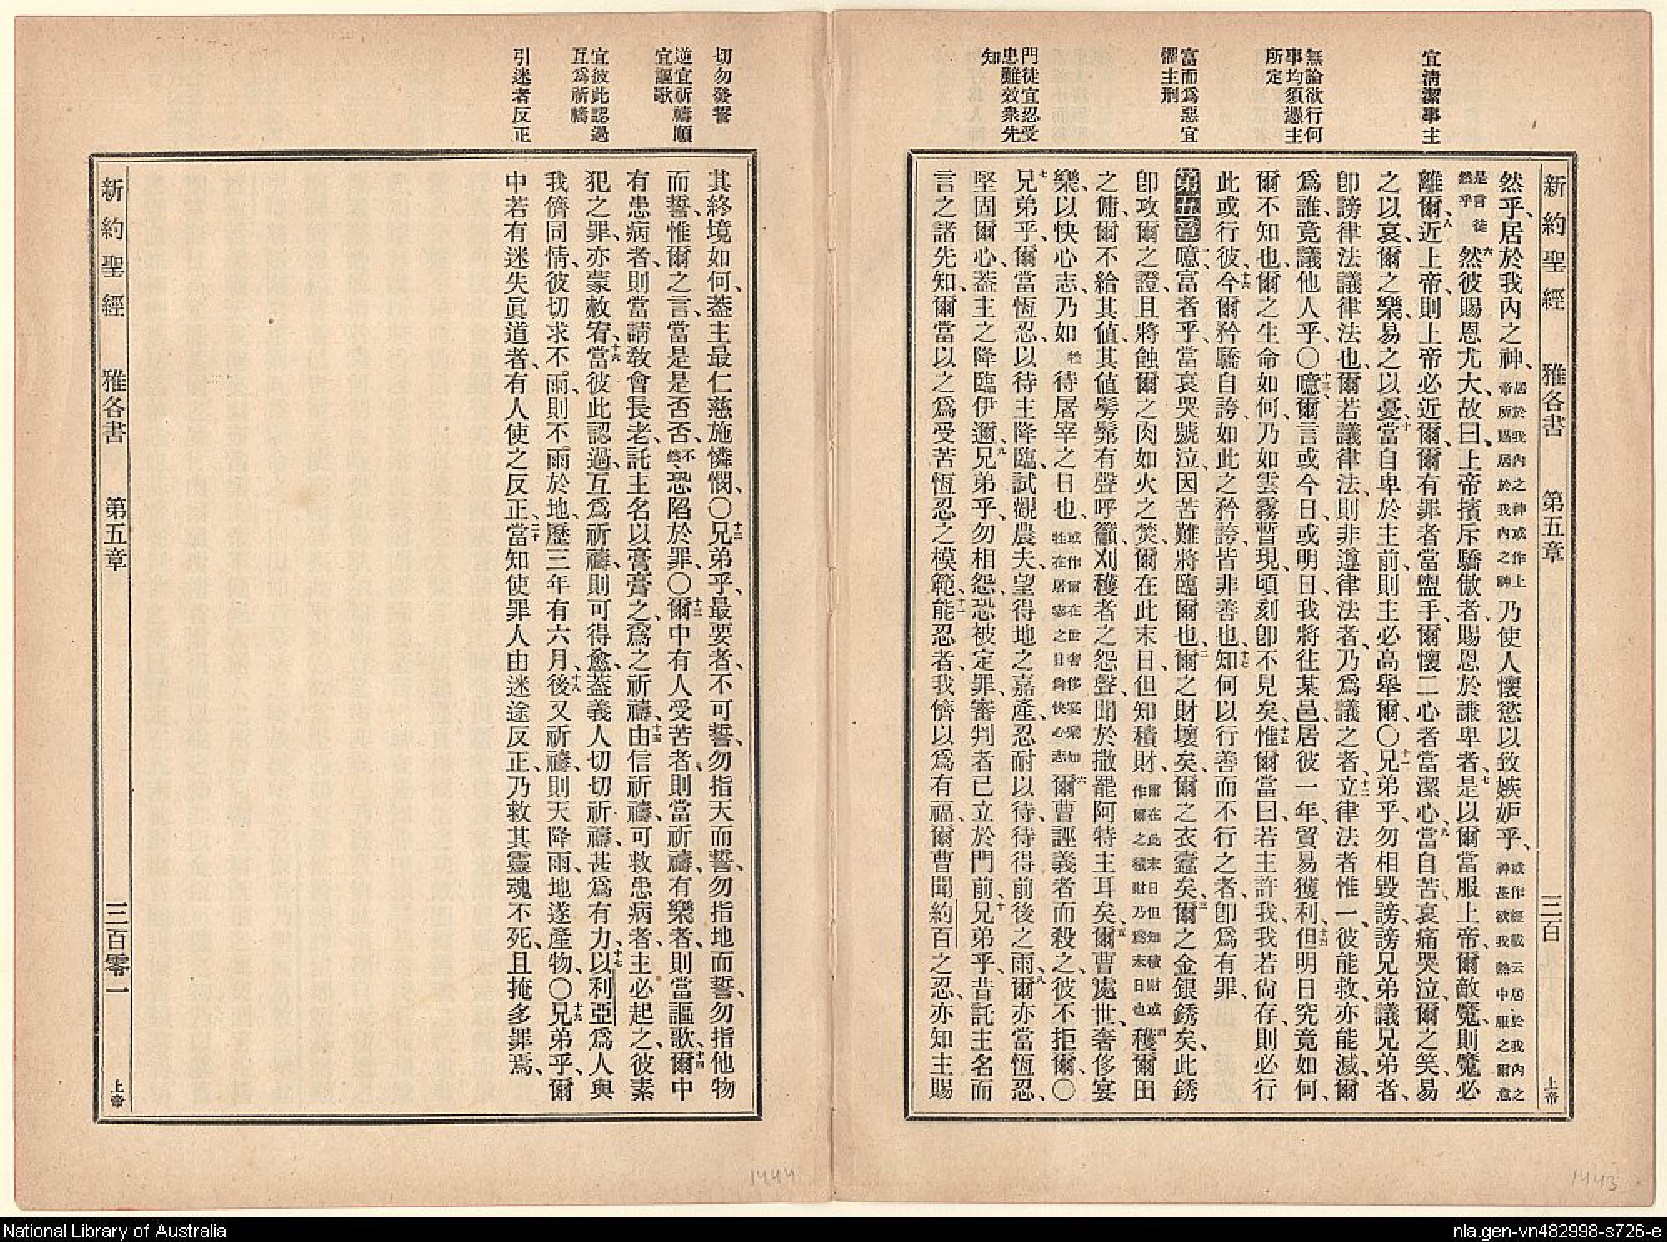 宜清潔事主
無論欲行何
事均須憑主
所定
富而爲惡宜
懼主刑
門徒宜忍受
患難效衆先
知
新約聖經 雅各書 第五章 三百 上帝
然乎、居於我內之神、居於我內之神或作上帝所賜居於我內之神乃使人懷慾以致嫉妒乎、或作經載云居於我內之神甚欲我熱中服之爾意
是言徒然乎六然彼賜恩尤大、故曰、上帝擯斥驕傲者、賜恩於謙卑者、七是以爾當服上帝、爾敵魔、則魔必
離爾、八近上帝、則上帝必近爾、爾有罪者當盥手、爾懷二心者當潔心、九當自苦哀痛哭泣、爾之笑易
之以哀、爾之樂易之以憂、十當自卑於主前、則主必高舉爾、〇十一兄弟乎、勿相毀謗、謗兄弟議兄弟者、
卽謗律法議律法也、爾若議律法、則非遵律法者、乃爲議之者、十二立律法者惟一、彼能救亦能滅、爾
爲誰、竟議他人乎、〇十三噫、爾言或今日或明日、我將往某邑、居彼一年、貿易獲利、十四但明日究竟如何、
爾不知也、爾之生命如何、乃如雲霧暫現、頃刻卽不見矣、十五惟爾當曰、若主許我、我若尙存、則必行
此或行彼、十六今爾矜驕自誇、如此之矜誇、皆非善也、十七知何以行善而不行之者、卽爲有罪、
第五章 一噫、富者乎、當哀哭號泣、因苦難將臨爾也、二爾之財壞矣、爾之衣蠹矣、三爾之金銀銹矣、此銹
卽攻爾之證、且將蝕爾之肉、如火之焚、爾在此末日、但知積財、爾在此末日但知積財或作爾之積財乃爲末日也四穫爾田
之傭、爾不給其値、其値髣髴有聲呼籲、刈穫者之怨聲、聞於撒罷阿特主耳矣、五爾曹處世奢侈宴
樂、以快心志、乃如牲待屠宰之日也、或作爾在世奢侈宴樂如牲在屠宰之日尙快心志六爾曹誣義者而殺之、彼不拒爾、〇
七兄弟乎、爾當恆忍、以待主降臨、試觀農夫、望得地之嘉產、忍耐以待、待得前後之雨、八爾亦當恆忍、
堅固爾心、蓋主之降臨伊邇、九兄弟乎、勿相怨、恐被定罪、審判者已立於門前、十兄弟乎、昔託主名而
言之諸先知、爾當以之爲受苦恆忍之模範、十一能忍者、我儕以爲有福、爾曹聞約百之忍、亦知主賜
切勿發誓
逆宜祈禱順
宜謳歌
宜彼此認過
互爲祈禱
引迷者反正
其終境如何、蓋主最仁慈、施憐憫、〇十二兄弟乎、最要者、不可誓、勿指天而誓、勿指地而誓、勿指他物
而誓、惟爾之言、當是是否否、不然、恐陷於罪、〇十三爾中有人受苦者、則當祈禱、有樂者、則當謳歌、十四爾中
有患病者、則當請敎會長老、託主名以膏膏之、爲之祈禱、十五由信祈禱、可救患病者、主必起之、彼素
犯之罪、亦蒙赦宥、十六當彼此認過、互爲祈禱、則可得愈、蓋義人切切祈禱、甚爲有力、十七以利亞爲人與
我儕同情、彼切求不雨、則不雨於地、歷三年有六月、十八後又祈禱、則天降雨、地遂產物、〇十九兄弟乎、爾
中若有迷失眞道者、有人使之反正、二十當知使罪人由迷途反正、乃救其靈魂不死、且掩多罪焉、
新約聖經 雅各書 第五章 三百零一 上帝
1444
1443
National Library of Australia
nla.gen-vn482998-s726-e